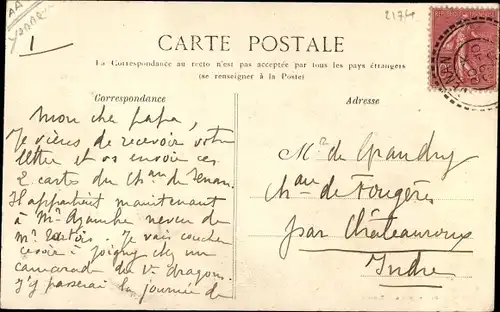 AA
Yonne
1
2174
CARTE POSTALE
La Correspondance au recto n'est pas acceptée par tous les pays étrangers
(se renseigner à la Poste)
Correspondance
Adresse
Mon che papa,
Je viens de recevoir votre
letter et vs envoie ces
2 cartes du Chau de Senan.
Il appartient maintenant
à Mr neveu de
Mr. Je vais coucher
ce soir à Joigny chez un
camarade du Ve dragons.
J'y passerai la journée de
Mr de Grandry
Chau de Fougères
par Châteauroux
Indre